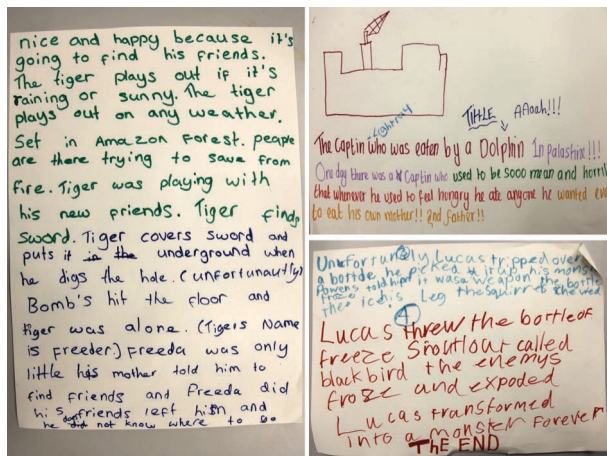 nice and happy because it's
going to find his friends.
The tiger plays out if it's
raining or sunny. The tiger
plays out on any weather.
Set in Amazon Forest. people
are there trying to save from
fire. Tiger was playing with
his new friends. Tiger finds
sword. Tiger covers sword and
puts it in the underground when
he digs the hole. (unfortunautly)
Bomb's hit the floor and
tiger was alone. (Tigers Name
is freeder.) Freeda was only
little his mother told him to
find friends and Freeda did
his friends left him and
he did not know where to go
TITTLE Aaaah!!!
The Captin who was eaten by a Dolphin In palastine!!!
One day there was a Captin who used to be sooo mean and horrible
that whenever he used to feel hungry he ate anyone he wanted even
to eat his own mother!! and father!!
Unfortunatly Lucas tripped over
a bottle he picked it up his monster
Powers told him it was a weapon the bottle
froze the Leg the squirrel
4
Lucas threw the bottle of
freeze Snoutlout called
blackbird the enemys
froze and expoded
Lucas transformed
into a monster Forever
ThE END